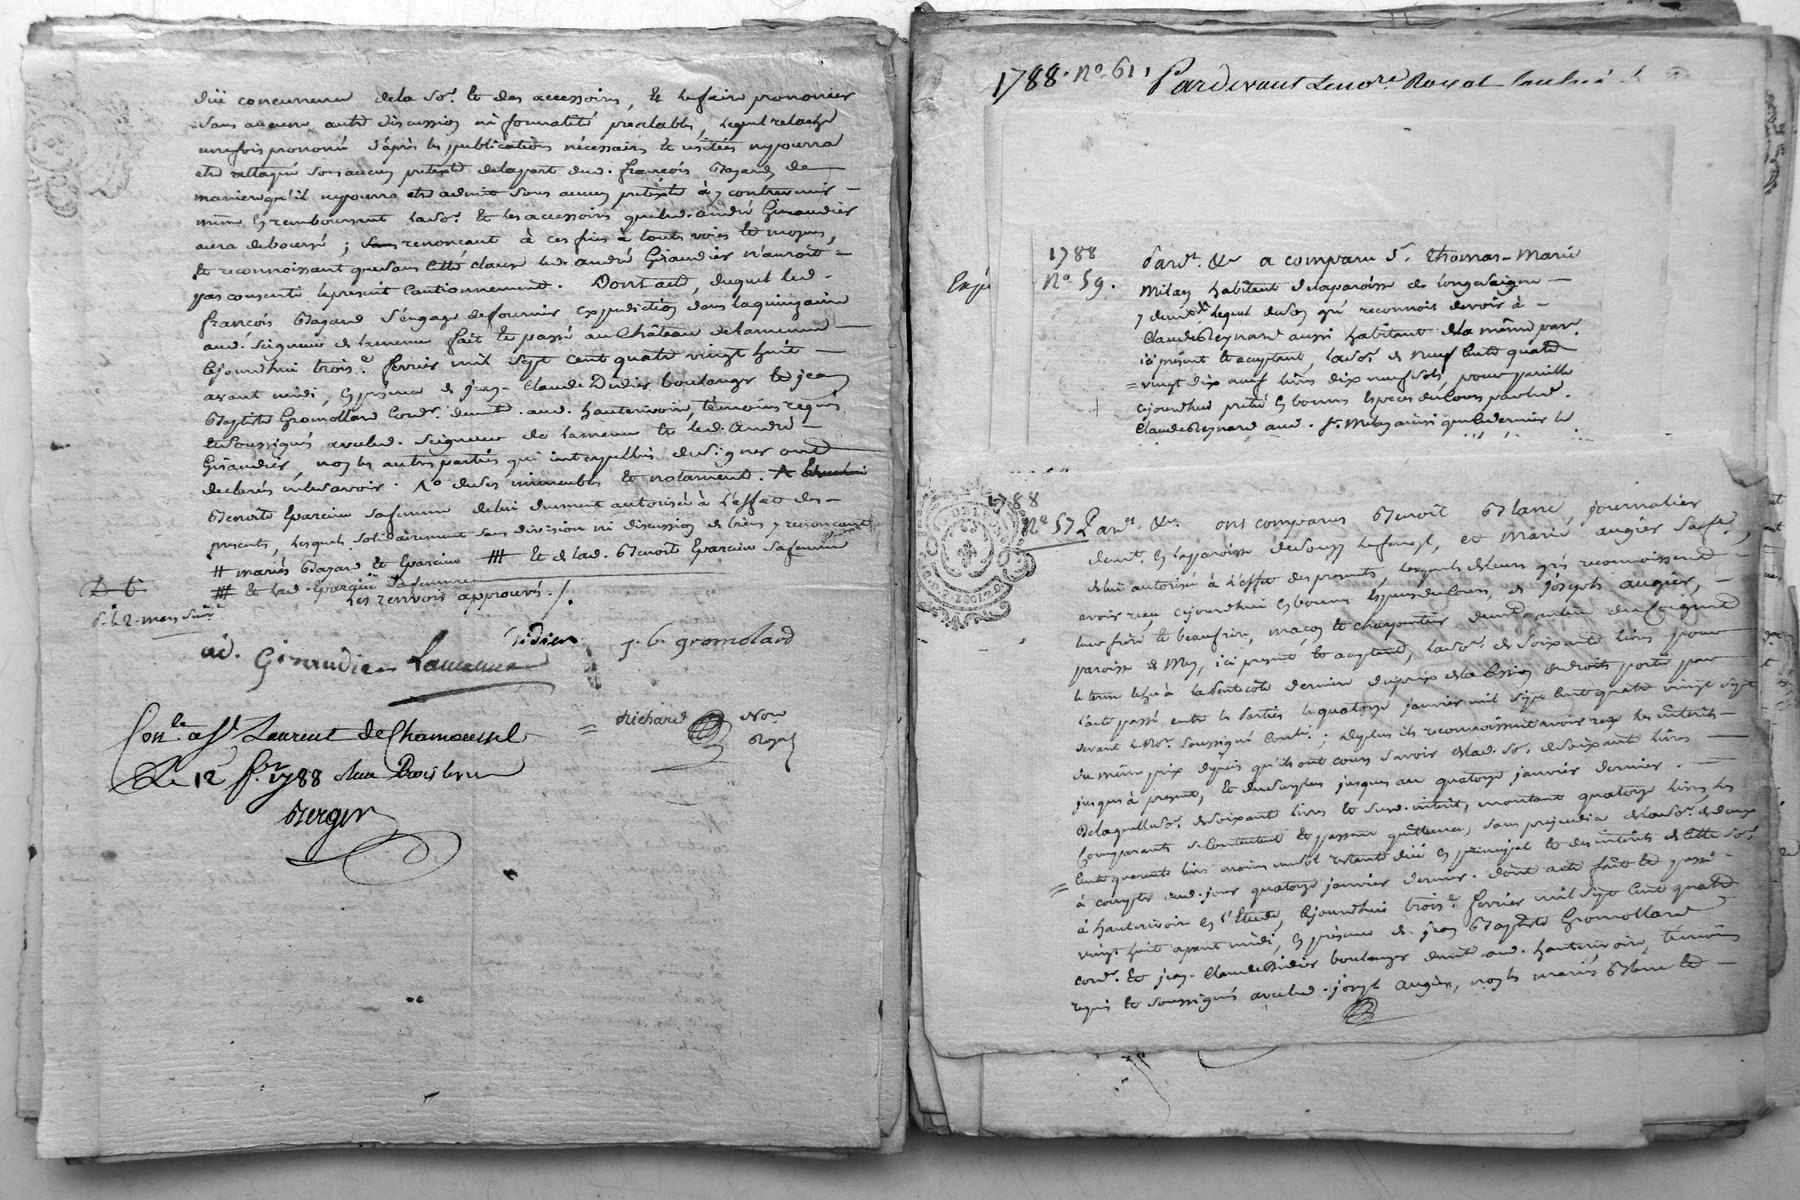 düe concurrence de la so.e et des accessoires, et le faire prononcer
sans aucune autre discussion ni formalité préalables, lequel relache
une fois prononcé d'après les publications nécessaires et usitées ne pourra
etre attaqué sous aucun pretexte de la part dud. françois Bazard, de
maniere qu'il ne pourra etre admis sous aucun pretexte à y contrevenir
même en remboursant la so.e et les accessoires que led. andré Giraudier
aura deboursé ; renoncant à ces fins à toutes voies et moyens,
et reconnoissant que sans cette clause led. andré Giraudier n'auroit
pas consenti le present cautionnement. Dont acte, duquel led.
françois Bazard s'engage de fournir expedition dans la quinzaine
aud. seigneur de lamenue fait et passé au Château de lamenue
cejourdhui trois.e fevrier mil sept cent quatre vingt huit
avant midi, en présence de jean-Claude Didier boulanger et jean
Baptiste Gromollard cord.r dem.t aud. hauterivoire, témoins requis
et soussignés avec led. seigneur de lamenue et led. andré
Giraudier, non les autres parties qui interpellées de signer ont
declarés ne le savoir. de ses immeubles et notament.
Benoite Eparcieu sa femme de lui dument autorisée à l'effet des
presentes, lesquels solidairement sans division ni discussion de biens y renoncant
# mariés Bazard et Eparcieu # et de lad. Benoite Eparcieu sa femme
# et lad. Eparcieu sa femme
les renvois approuvés ./.
ad. Giraudier Lamenue Didier j. b. gromolard
Con.le à S.t Laurent de Chamousset
Le 12 f.er 1788
Berger
= Richard Not.re
Royal
1788. n.o 61, Pardevant Le no.re Royal
1788
N.o 59.
Pardt. &a a comparu S.r Thomas-Marie
Milan habitant de la paroisse de Longesaigne
y demt. lequel de son gré reconnois devoir à
Claude Reynard aussi habitant de la même par.
ici présent et acceptant, la so.e de neuf cents quatre
= vingt dix neuf livres dix neuf sols, pour pareille
cejourdhui prêtée en bonnes Especes du cours par led.
Claude Reynard aud. S.r Milan ainsi que ce dernier le
1788
N.o 57 Pardt. &a ont comparus Benoît Blanc, journalier
demt. en la paroisse de Souzy et marie augier sa fe.,
de lui autorisée à l'effet des presentes, lesquels de leurs grés reconnoissent
avoir reçu cejourdhui en bonnes Especes du cours, de joseph augier,
leur frere et beaufrere, maçon et charpentier demt.
paroisse de Mey, ici present et acceptant, la so.e de soixante livres pour
le terme echu à la Pentecôte derniere du prix de la cession de droits portée par
l'acte passé entre les Parties le quatorze janvier mil sept cent quatre vingt sept
devant le No.re soussigné ; deplus ils reconnoissent avoir reçu les intérêts
du même prix depuis qu'ils ont cours savoir de lad. so.e de soixante livres
jusques à présent, et du surplus jusques au quatorze janvier dernier.
De laquelle so.e de soixante livres et susd. interêts, montant quatorze livres, les
Comparants se contentent et passent quittance, sans prejudice de la so.e de deux
= cents quarante livres moins un sol restante düe en principal et des intérêts de cette so.e
à compter dud. jour quatorze janvier dernier. dont acte fait et passé
à hauterivoire en l'Etude, cejourdhui trois.e fevrier mil sept cent quatre
vingt huit apant midi, en présence de jean Baptiste Gromollard
cord.r et jean-Claude Didier boulanger demt. aud. hauterivoire, témoins
requis et soussignés avec led. joseph augier, non les mariés Blanc et